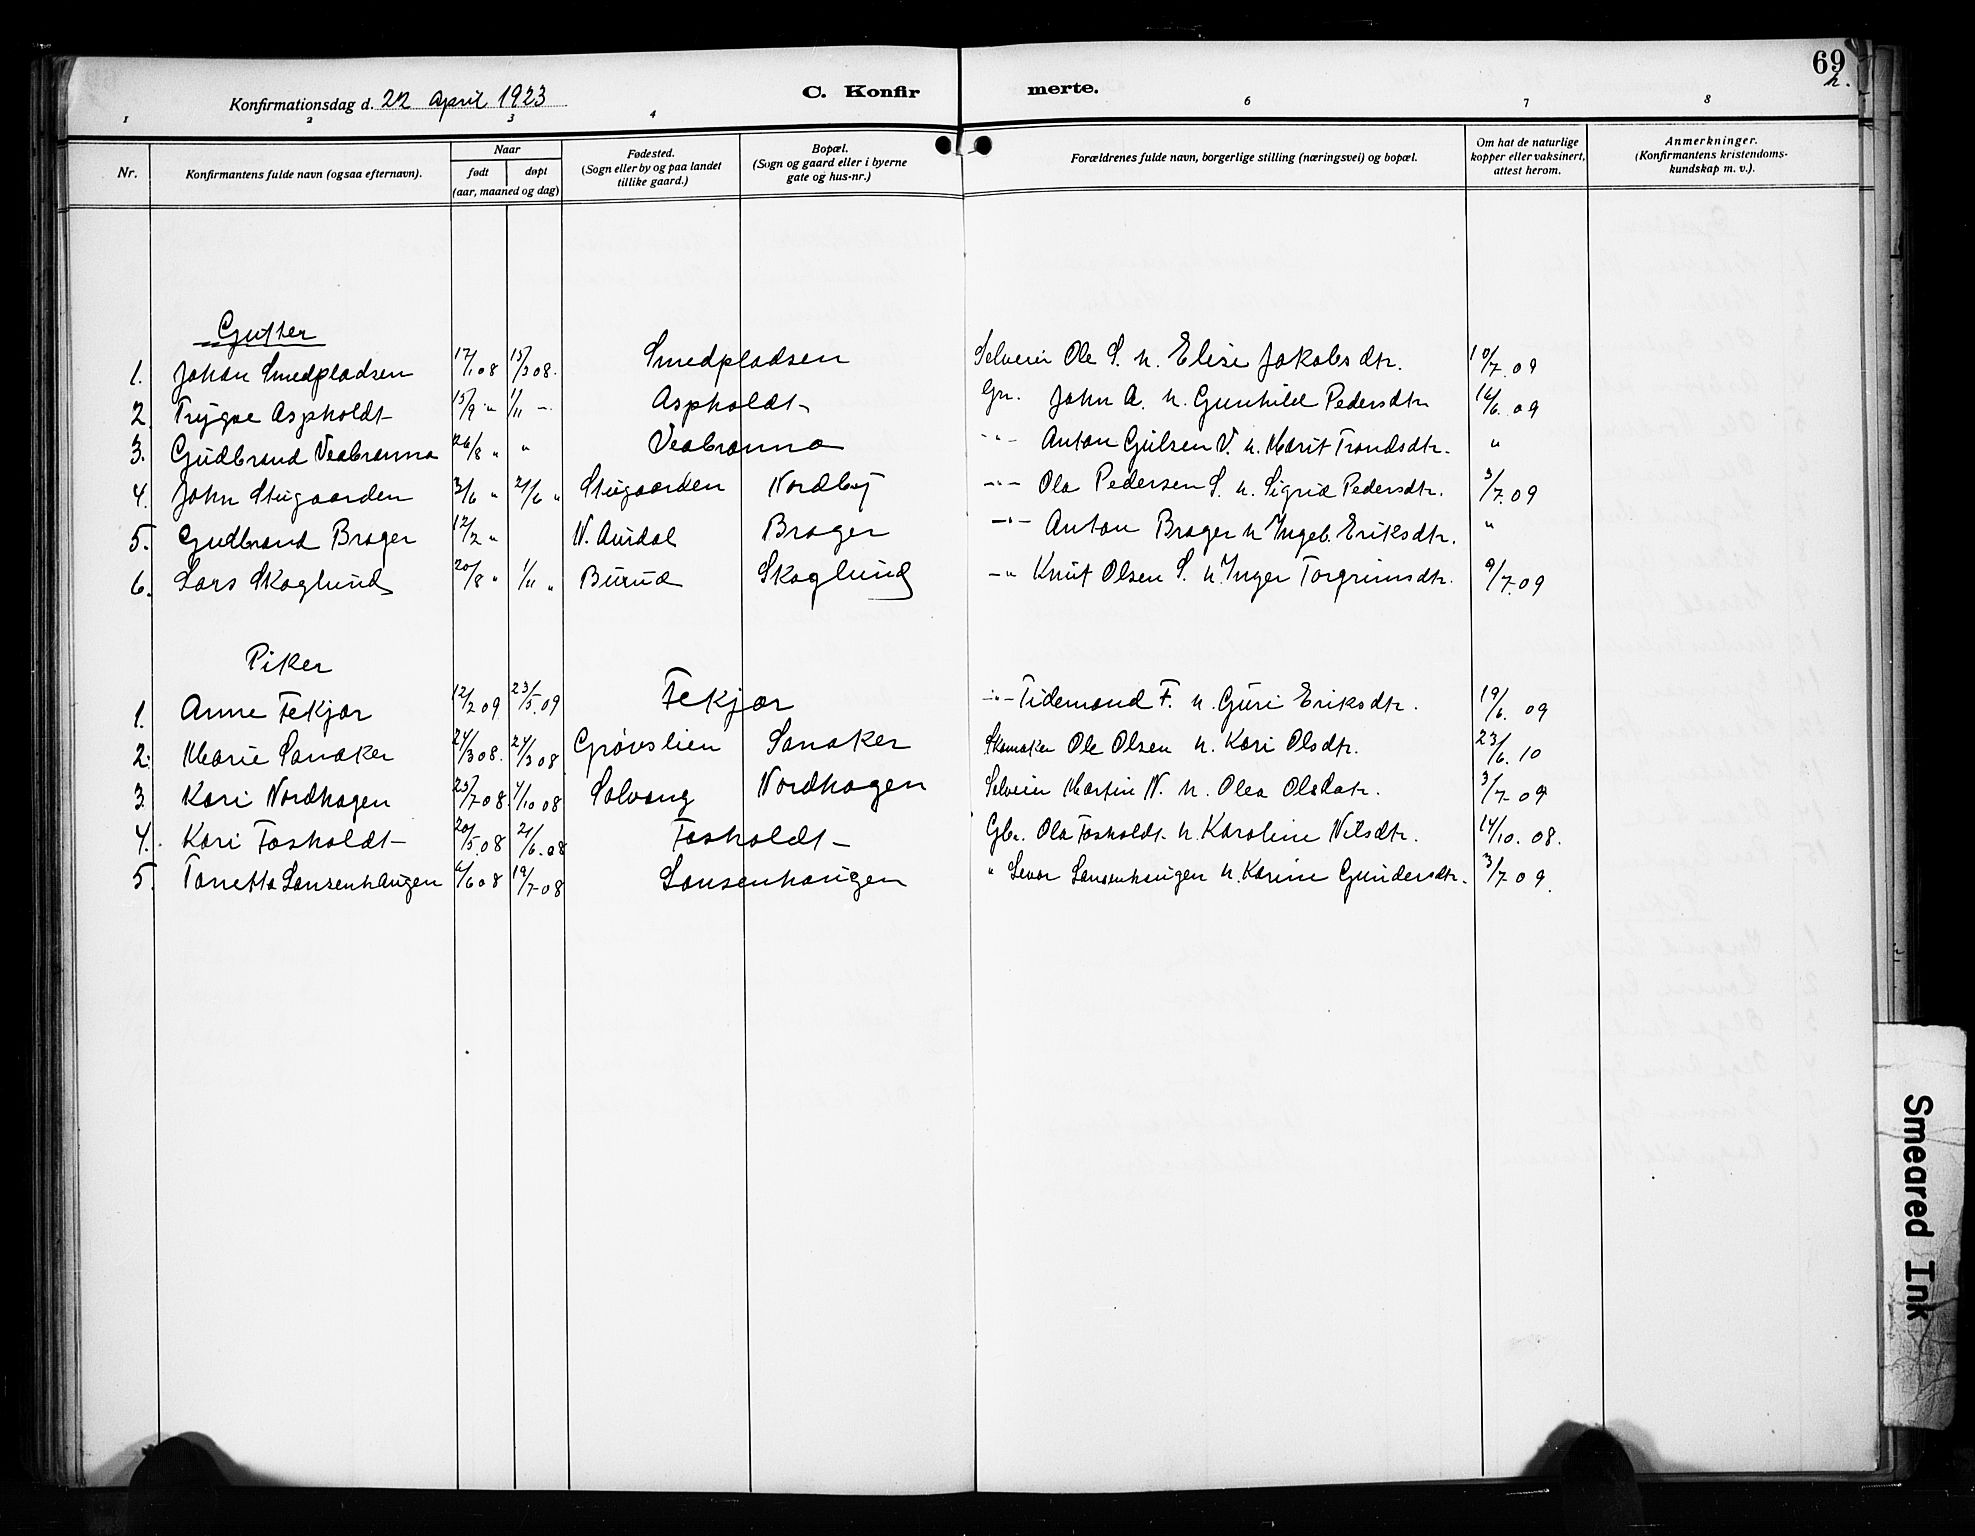 69
h.
Konfirmationsdag d. 22 april 1923 C. Konfirmerte.
1 2 3 4 6 7 8
Nr. Konfirmantens fulde navn (ogsaa efternavn). Naar født døpt (aar, maaned og dag) Fødested. (Sogn eller by og paa landet tillike gaard.) Bopæl. (Sogn og gaard eller i byerne gate og hus-nr.) Forældrenes fulde navn, borgerlige stilling (næringsvei) og bopæl. Om hat de naturlige kopper eller vaksinert, attest herom. Anmerkninger. (Konfirmantens kristendoms-kundskap m. v.).
Gutter
1. Johan Smedpladsen 17/1 08 15/3 08. Smedpladsen Selveier Ole S. u. Elise Jakobsdtr. 10/7. 09
2. Trygve Aspholdt 15/9 " 1/11 - Aspholdt Gr. John A. u. Gunhild Pedersdtr 16/6. 09
3. Gudbrand Veabranna 26/8 " " Veabranna -"- Anton Gulsen V. u. Marit Trondsdtr. "
4. John Stugaarden 3/6 " 21/6 " Stugaarden Nordby -"- Ola Pedersen S. u. Sigrid Pedersdtr. 3/7. 09
5. Gudbrand Brager 12/2 " N. Aurdal Brager -"- Anton Brager u Ingeb. Eriksdtr. "
6. Lars Skoglund 20/8 " 1/11 " Burud Skoglund -" Knut Olsen S. u. Inger Torgrimsdtr. 9/7. 09
Piker
1. Anne Fekjær 12/2 09 23/5. 09 Fekjær -"- Tidemand F. u. Guri Eriksdtr. 19/6. 09
2. Marie Sanaker 24/3 08. 24/3 08 Grøvslien Sanaker Skomaker Ole Olsen u. Kari Olsdtr. 23/6. 10
3. Kari Nordhagen 23/7 08. 4/10 08 Solvang Nordhagen Selveier Martin N. u. Olea Olsdatr. 3/7. 09
4. Kari Fosholdt 20/5. 08 21/6. 08 Fosholdt Gbr. Ola Fosholdt u. Karoline Nilsdtr. 14/10. 08.
5. Tonetta Lausenhaugen 6/6 08 19/7 08 Lausenhaugen " Levor Lausenhaugen u. Karine Gundersdtr. 3/7. 09.
Smeared Ink